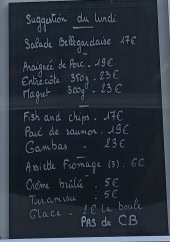 Suggestion du lundi
Salade Bellegardaise 17€
Araignée de Porc - 19€
Entrecôte 350g - 23€
Magret 300g - 23€
Fish and chips - 17€
Pavé de saumon - 19€
Gambas - 23€
Assiette Fromage (3) - 6€
Crème brûlée - 5€
Tiramisu 5€
Glace - 2€ la boule
PAS de CB